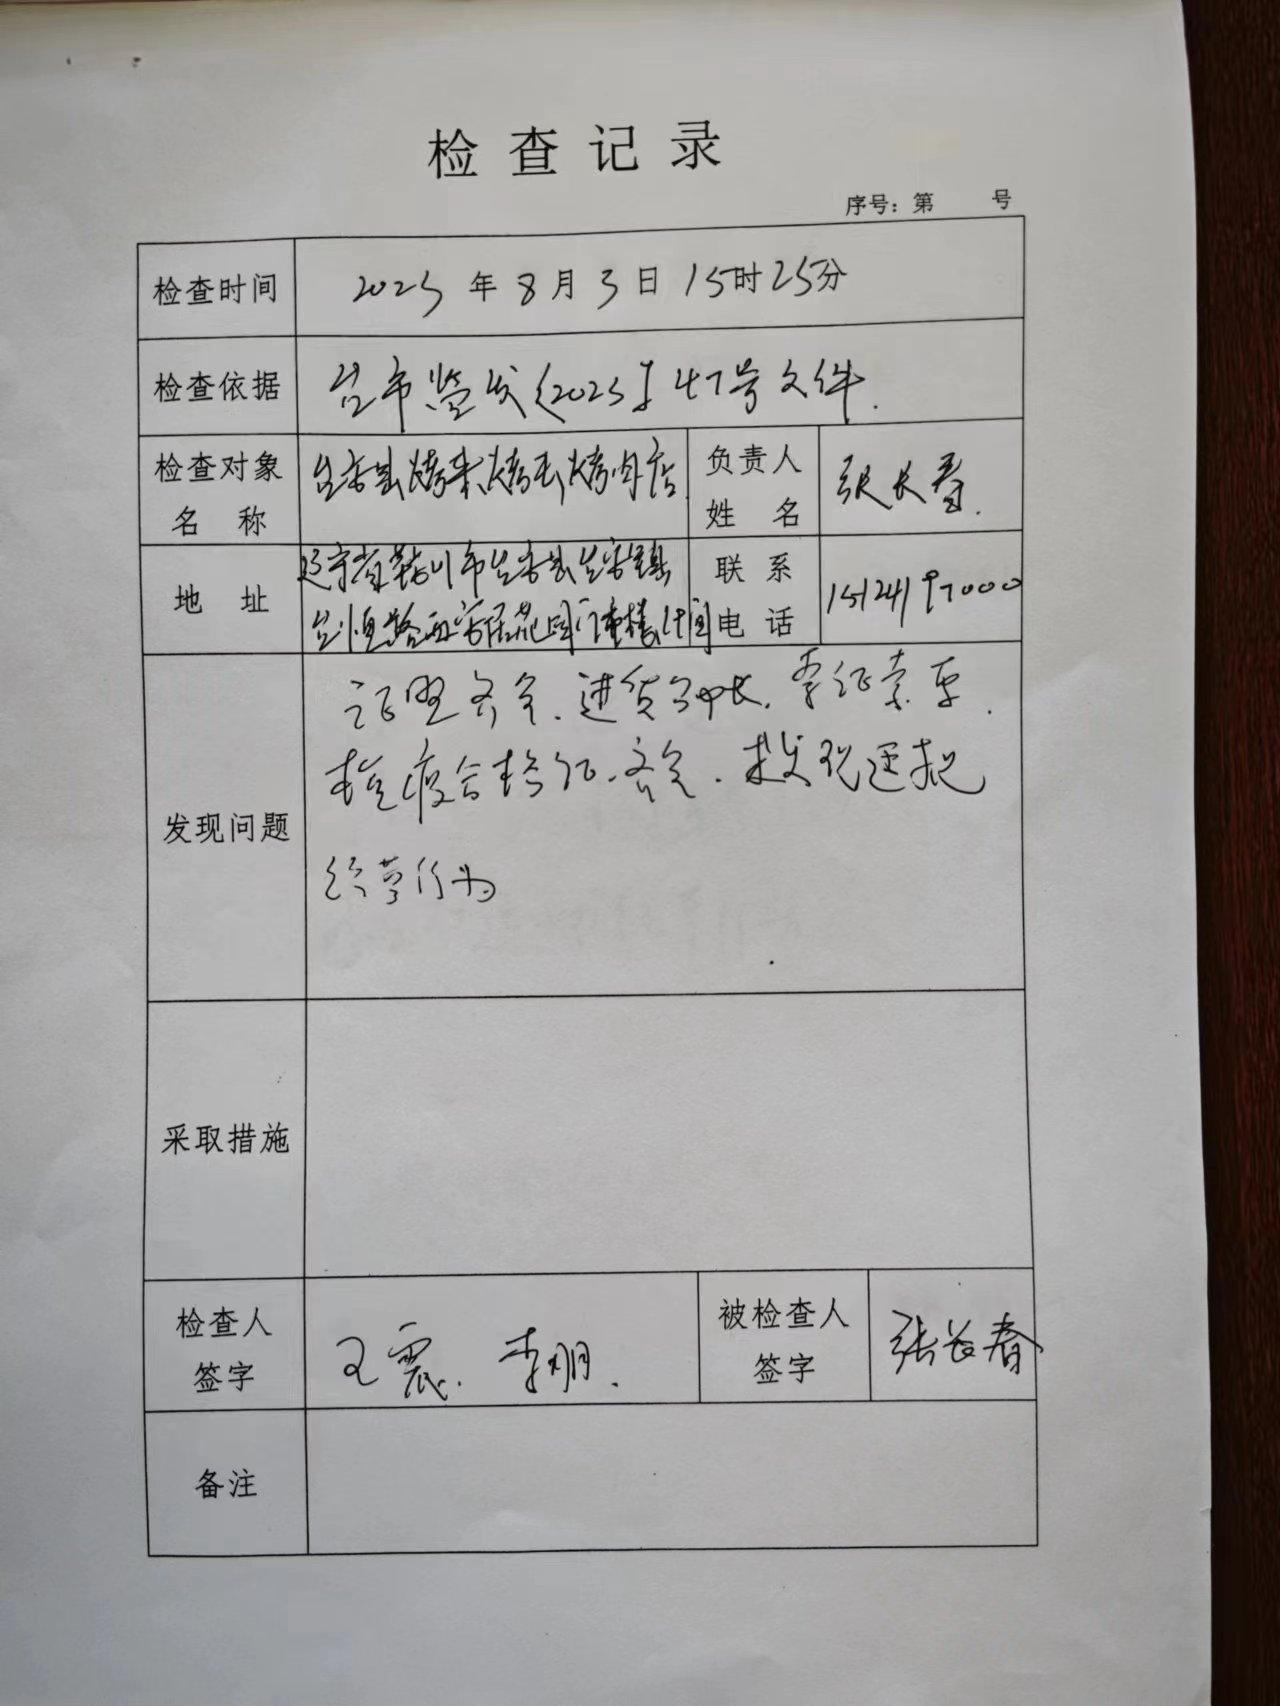 检查记录
序号：第 号
检查时间 2025年8月3日15时25分
检查依据 台市监发〔2025〕47号文件.
检查对象 台安县烤来烤去烤肉店 负责人 张长春.
名 称 姓 名
地 址 辽宁省鞍山市台安县台安镇 联 系 15124197000
台恒路西安居苑 门市楼 间 电 话
发现问题 证照齐全、进货台帐、索证索票、
检疫合格证、齐全、未发现违规
经营行为
采取措施
检查人 王震. 李朋. 被检查人 张长春
签字 签字
备注